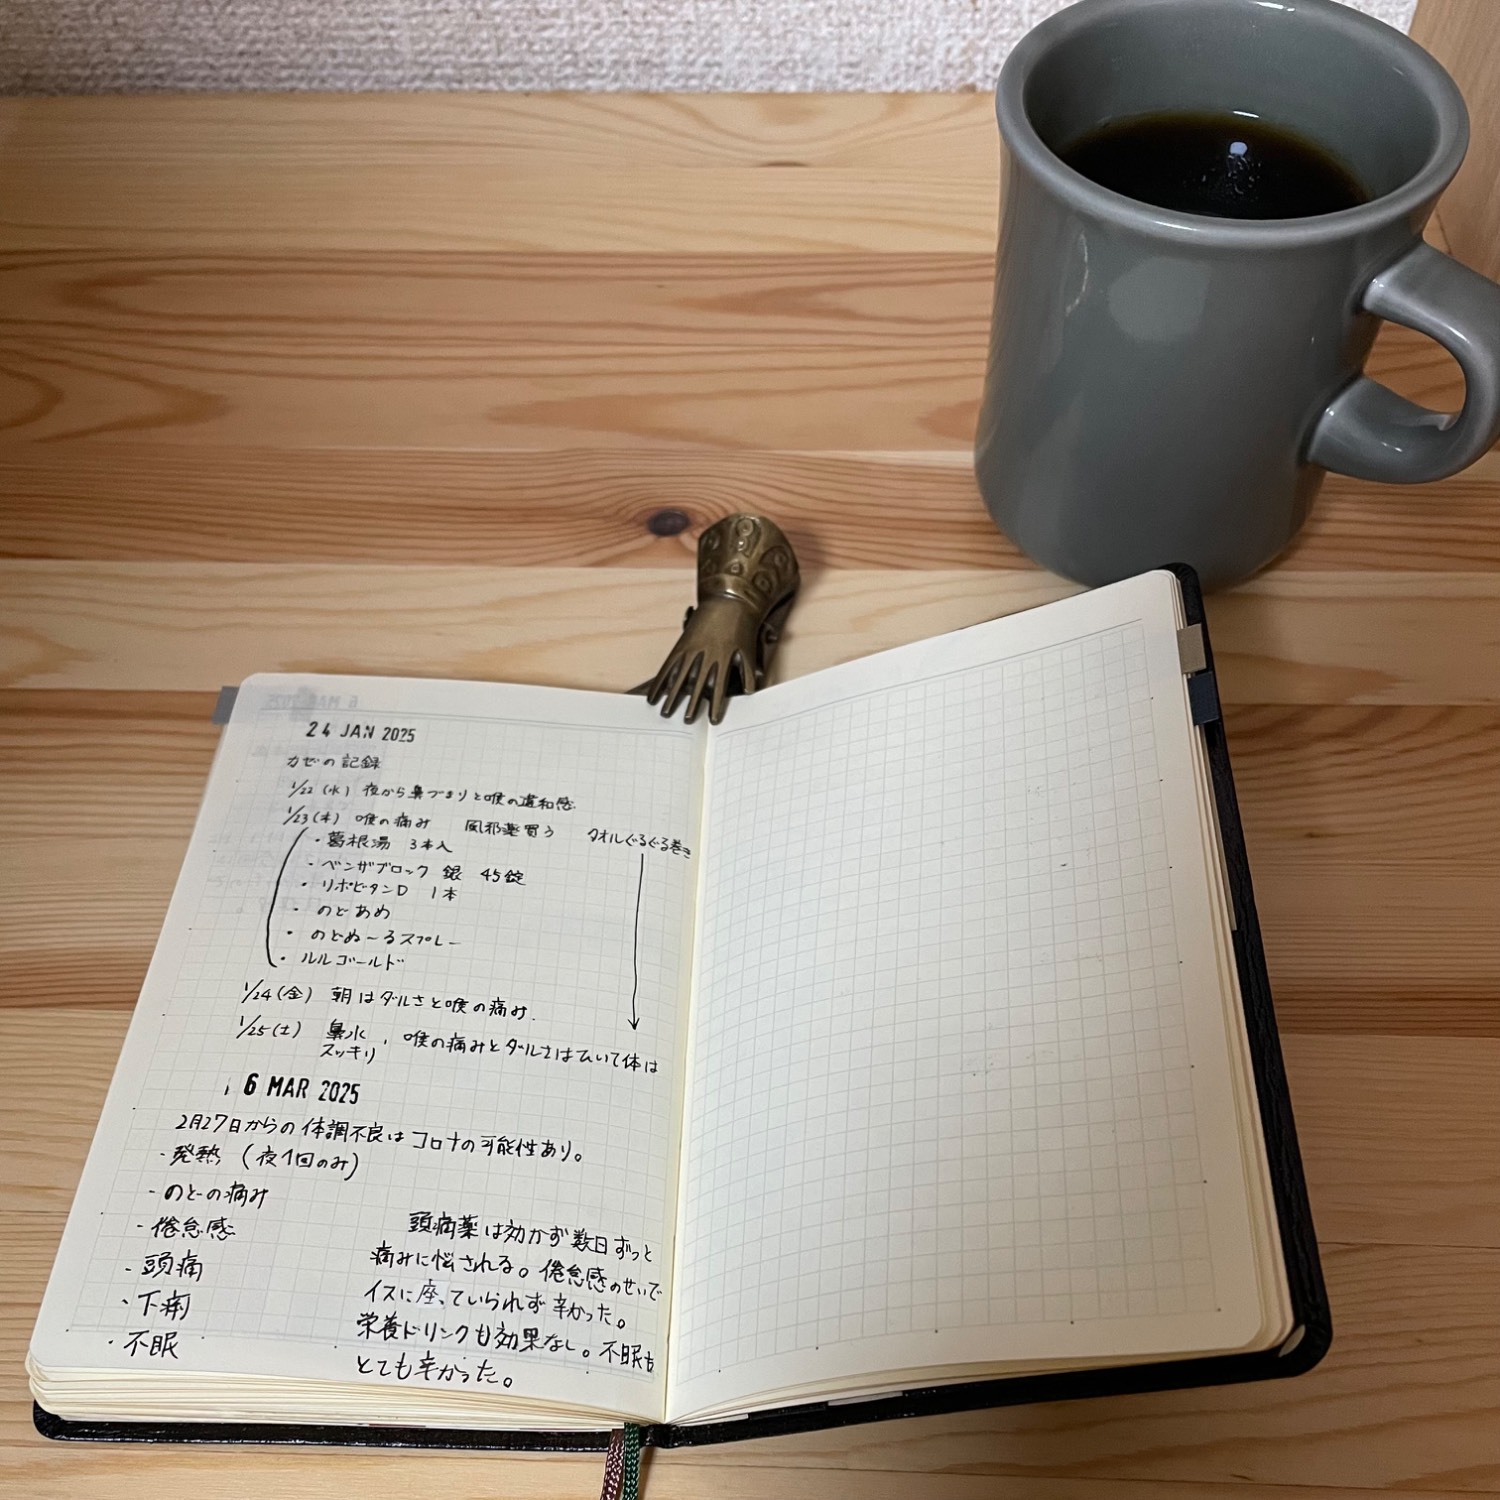 24 JAN 2025
カゼの記録
1/22(水) 夜から鼻づまりと喉の違和感
1/23(木) 喉の痛み 風邪薬買う タオルぐるぐる巻き
・葛根湯 3本入
・ベンザブロック 銀 45錠
・リポビタンD 1本
・のどあめ
・のどぬ〜るスプレー
・ルルゴールド
1/24(金) 朝はダルさと喉の痛み.
1/25(土) 鼻水、喉の痛みとダルさはひいて体は
スッキリ
6 MAR 2025
2月27日からの体調不良はコロナの可能性あり。
・発熱 (夜1回のみ)
・のどの痛み
・倦怠感
・頭痛
・下痢
・不眠
頭痛薬は効かず数日ずっと
痛みに悩される。倦怠感のせいで
イスに座っていられず辛かった。
栄養ドリンクも効果なし。不眠も
とても辛かった。